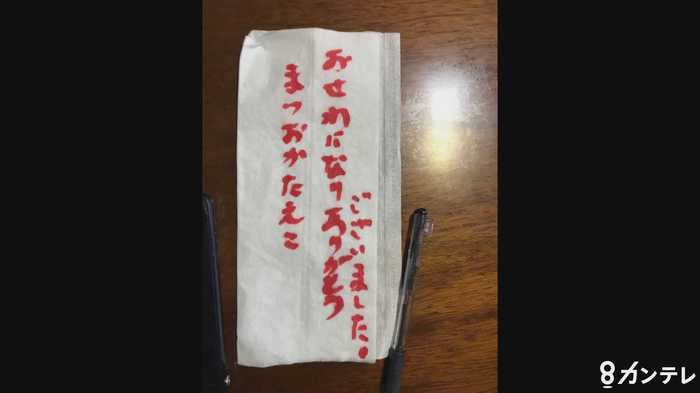 おせわになりありがとう
ございました。
まつおかたえこ
8カンテレ